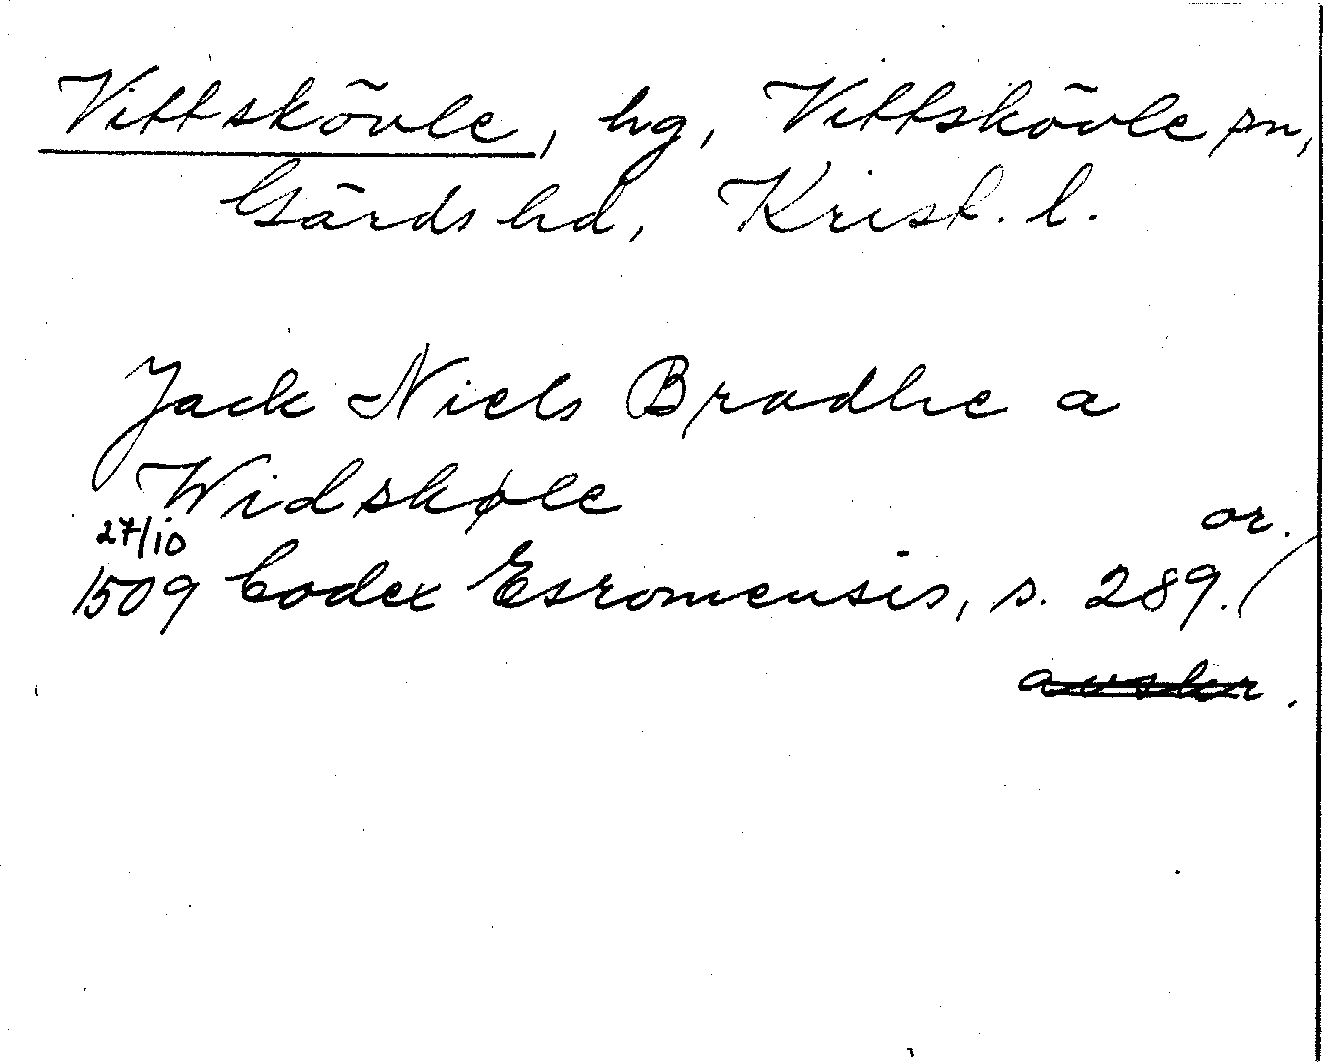 Vittskövle, hg, Vittskövle sn,
Gärds hd, Krist. l.
Jack Niels Bradhe a
Widskøle
27/10
or.
1509 Codex Esromensis, s. 289. (
avskr.